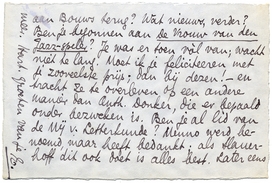 aan Bouws terug? Wat nieuws, verder?
Ben je begonnen aan De Vrouw van den
Jazz-speler? Je was er toen vól van; wacht
niet te lang. Moet ik je feliciteeren met
je zooveelste prijs; dan bij dezen! – en
tracht ze te overleven op een andere
manier dan Anth. Donker, die er bepaald
onder bezweken is. Ben je al lid van
de Mij v. Letterkunde? Menno werd be-
noemd maar heeft bedankt; als Slauer-
hoff dit ook doet is alles best. Later eens
meer. Hart. groeten van je E.